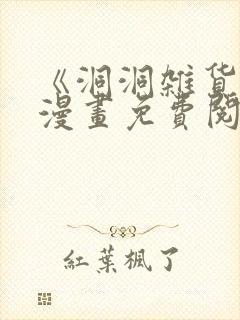 《洞洞雑貨
漫畫免費閱
紅葉楓了